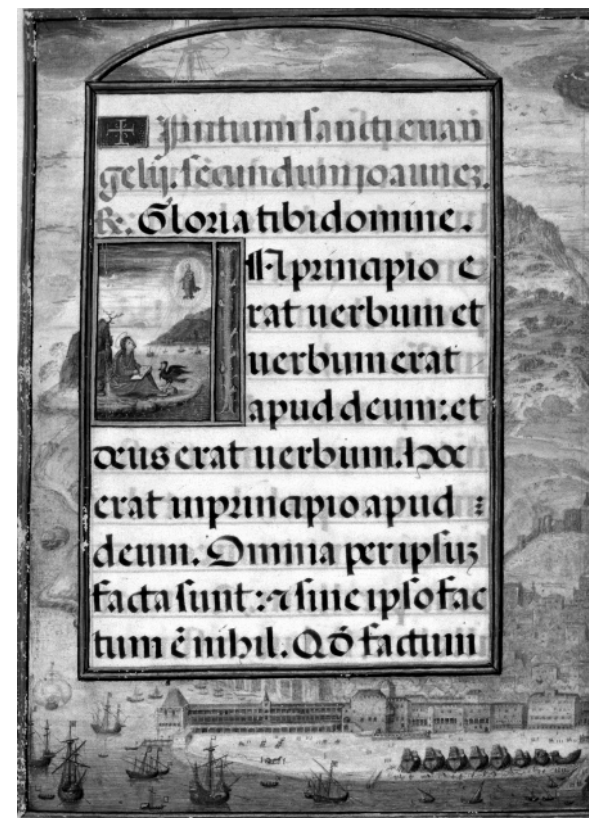 Initium sancti euan
gelij. secundum ioannez.
R: Gloria tibi domine.
IN principio e
rat uerbum et
uerbum erat
apud deum: et
deus erat uerbum. hoc
erat inprincipio apud :
deum. Omnia per ipsuz
facta sunt: ⁊ sine ipso fac
tum ē nihil. Qō factum